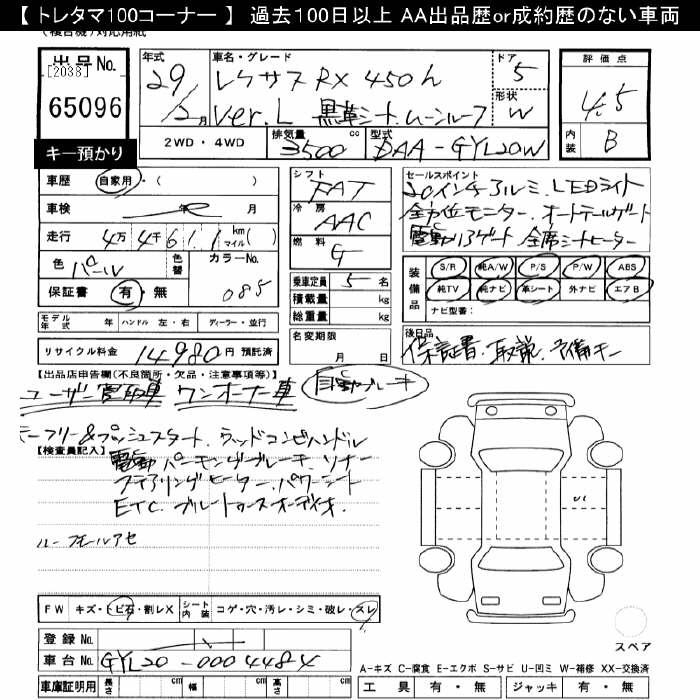 【 トレタマ100コーナー 】 過去100日以上 AA出品歴or成約歴のない車両
(複合機)対応用紙
出品No.
[2038]
65096
キー預かり
年式
29/12月
車名・グレード
レクサス RX 450h
Ver.L 黒革シート、ムーンルーフ
ドア
5
形状
W
評価点
4.5
内装
B
2WD・4WD
排気量 3500 cc
型式 DAA-GYL20W
車歴 自家用・( )
車検 年 月
走行 4万4千611 km マイル ( )
色 パール 色替 カラーNo. 085
保証書 有・無
シフト FAT
冷房 AAC
燃料 G
乗車定員 5 名
積載量 kg
総重量 kg
セールスポイント
20インチアルミ、LEDライト
全方位モニター、オートテールゲート
電動リアゲート 全席シートヒーター
装備品
S/R 純A/W P/S P/W ABS
純TV 純ナビ 革シート 外ナビ エアB
ナビ型番:
モデル年式 年 ハンドル 左・右 ディーラー・並行
リサイクル料金 14980円 預託済
名変期限 月 日
後日品
保証書、取説、予備キー
【出品店申告欄(不良箇所・欠品・注意事項等)】
ユーザー買取車 ワンオーナー車 自動ブレーキ
キーフリー&プッシュスタート、ウッドコンビハンドル
【検査員記入】
電動パーキングブレーキ、ソナー
ステアリングヒーター、パワーシート
ETC、ブルートゥースオーディオ、
ルーフモールアセ
FW キズ・トビ石・割レX シート内装 コゲ・穴・汚レ・シミ・破レ・スレ
U1
スペア
登録No.
車台No. GYL20-0004484
A-キズ C-腐食 E-エクボ S-サビ U-凹ミ W-補修 XX-交換済
車庫証明用 長さ cm 幅 cm 高さ cm
工具 有・無 ジャッキ 有・無